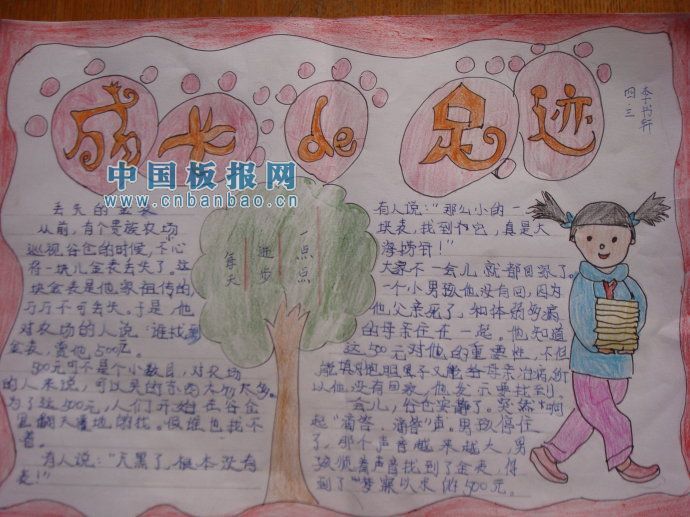 成长de足迹
李书轩
四.三
中国板报网
www.cnbanbao.cn
每天
进步
一点点
丢失的金表
从前,有个贵族农场
巡视谷仓的时候,不心
将一块儿金表丢失了。这
块金表是他家祖传的,
万万不可丢失。于是,他
对农场的人说:谁找到
金表,赏他500元。
500元可不是个小数目,对农场
的人来说,可以买的东西太多太多。
为了这500元,人们开始在谷仓
里翻天覆地的找。但谁也找不
着。
有人说:“天黑了,根本没有
表!”
有人说:“那么小的一
块表,找到它,真是大
海捞针!”
大家不一会儿就都回家了。
一个小男孩他没有回,因为
他父亲死了,和体弱多病
的母亲住在一起。他知道
这500元对他的重要性,不但
能填饱肚子又能给母亲治病,所
以他没有回家,他发示要找到。
会儿,谷仓安静了。突然响
起“滴答,滴答”声。男孩停住
了。那个声音越来越大,男
孩顺着声音找到了金表,得
到了“梦寐以求的500元。